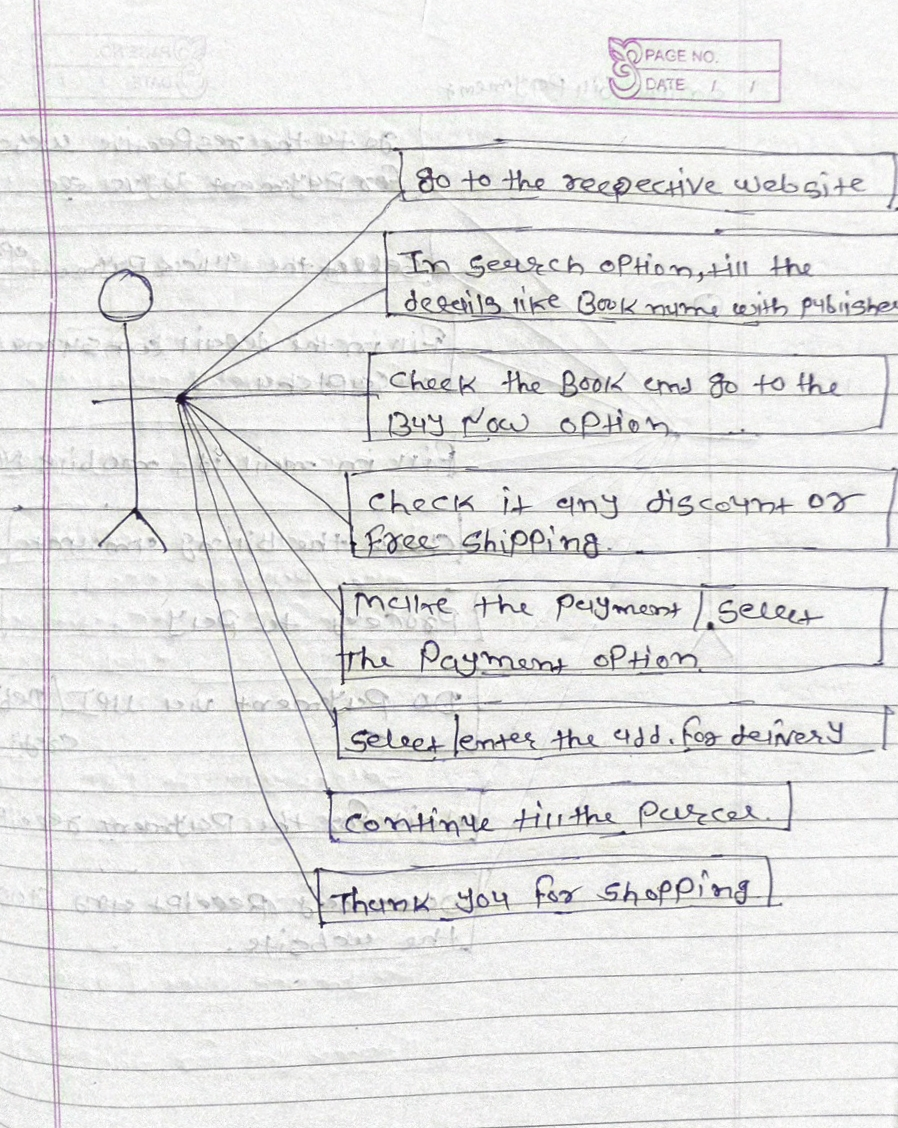 PAGE NO.
DATE / /
go to the respective website
In search option, fill the
details like Book name with publisher
Check the Book and go to the
Buy Now option
Check if any discount or
free shipping.
Make the payment / select
the Payment option
Select / enter the add. for delivery
continue till the parcel.
Thank you for shopping